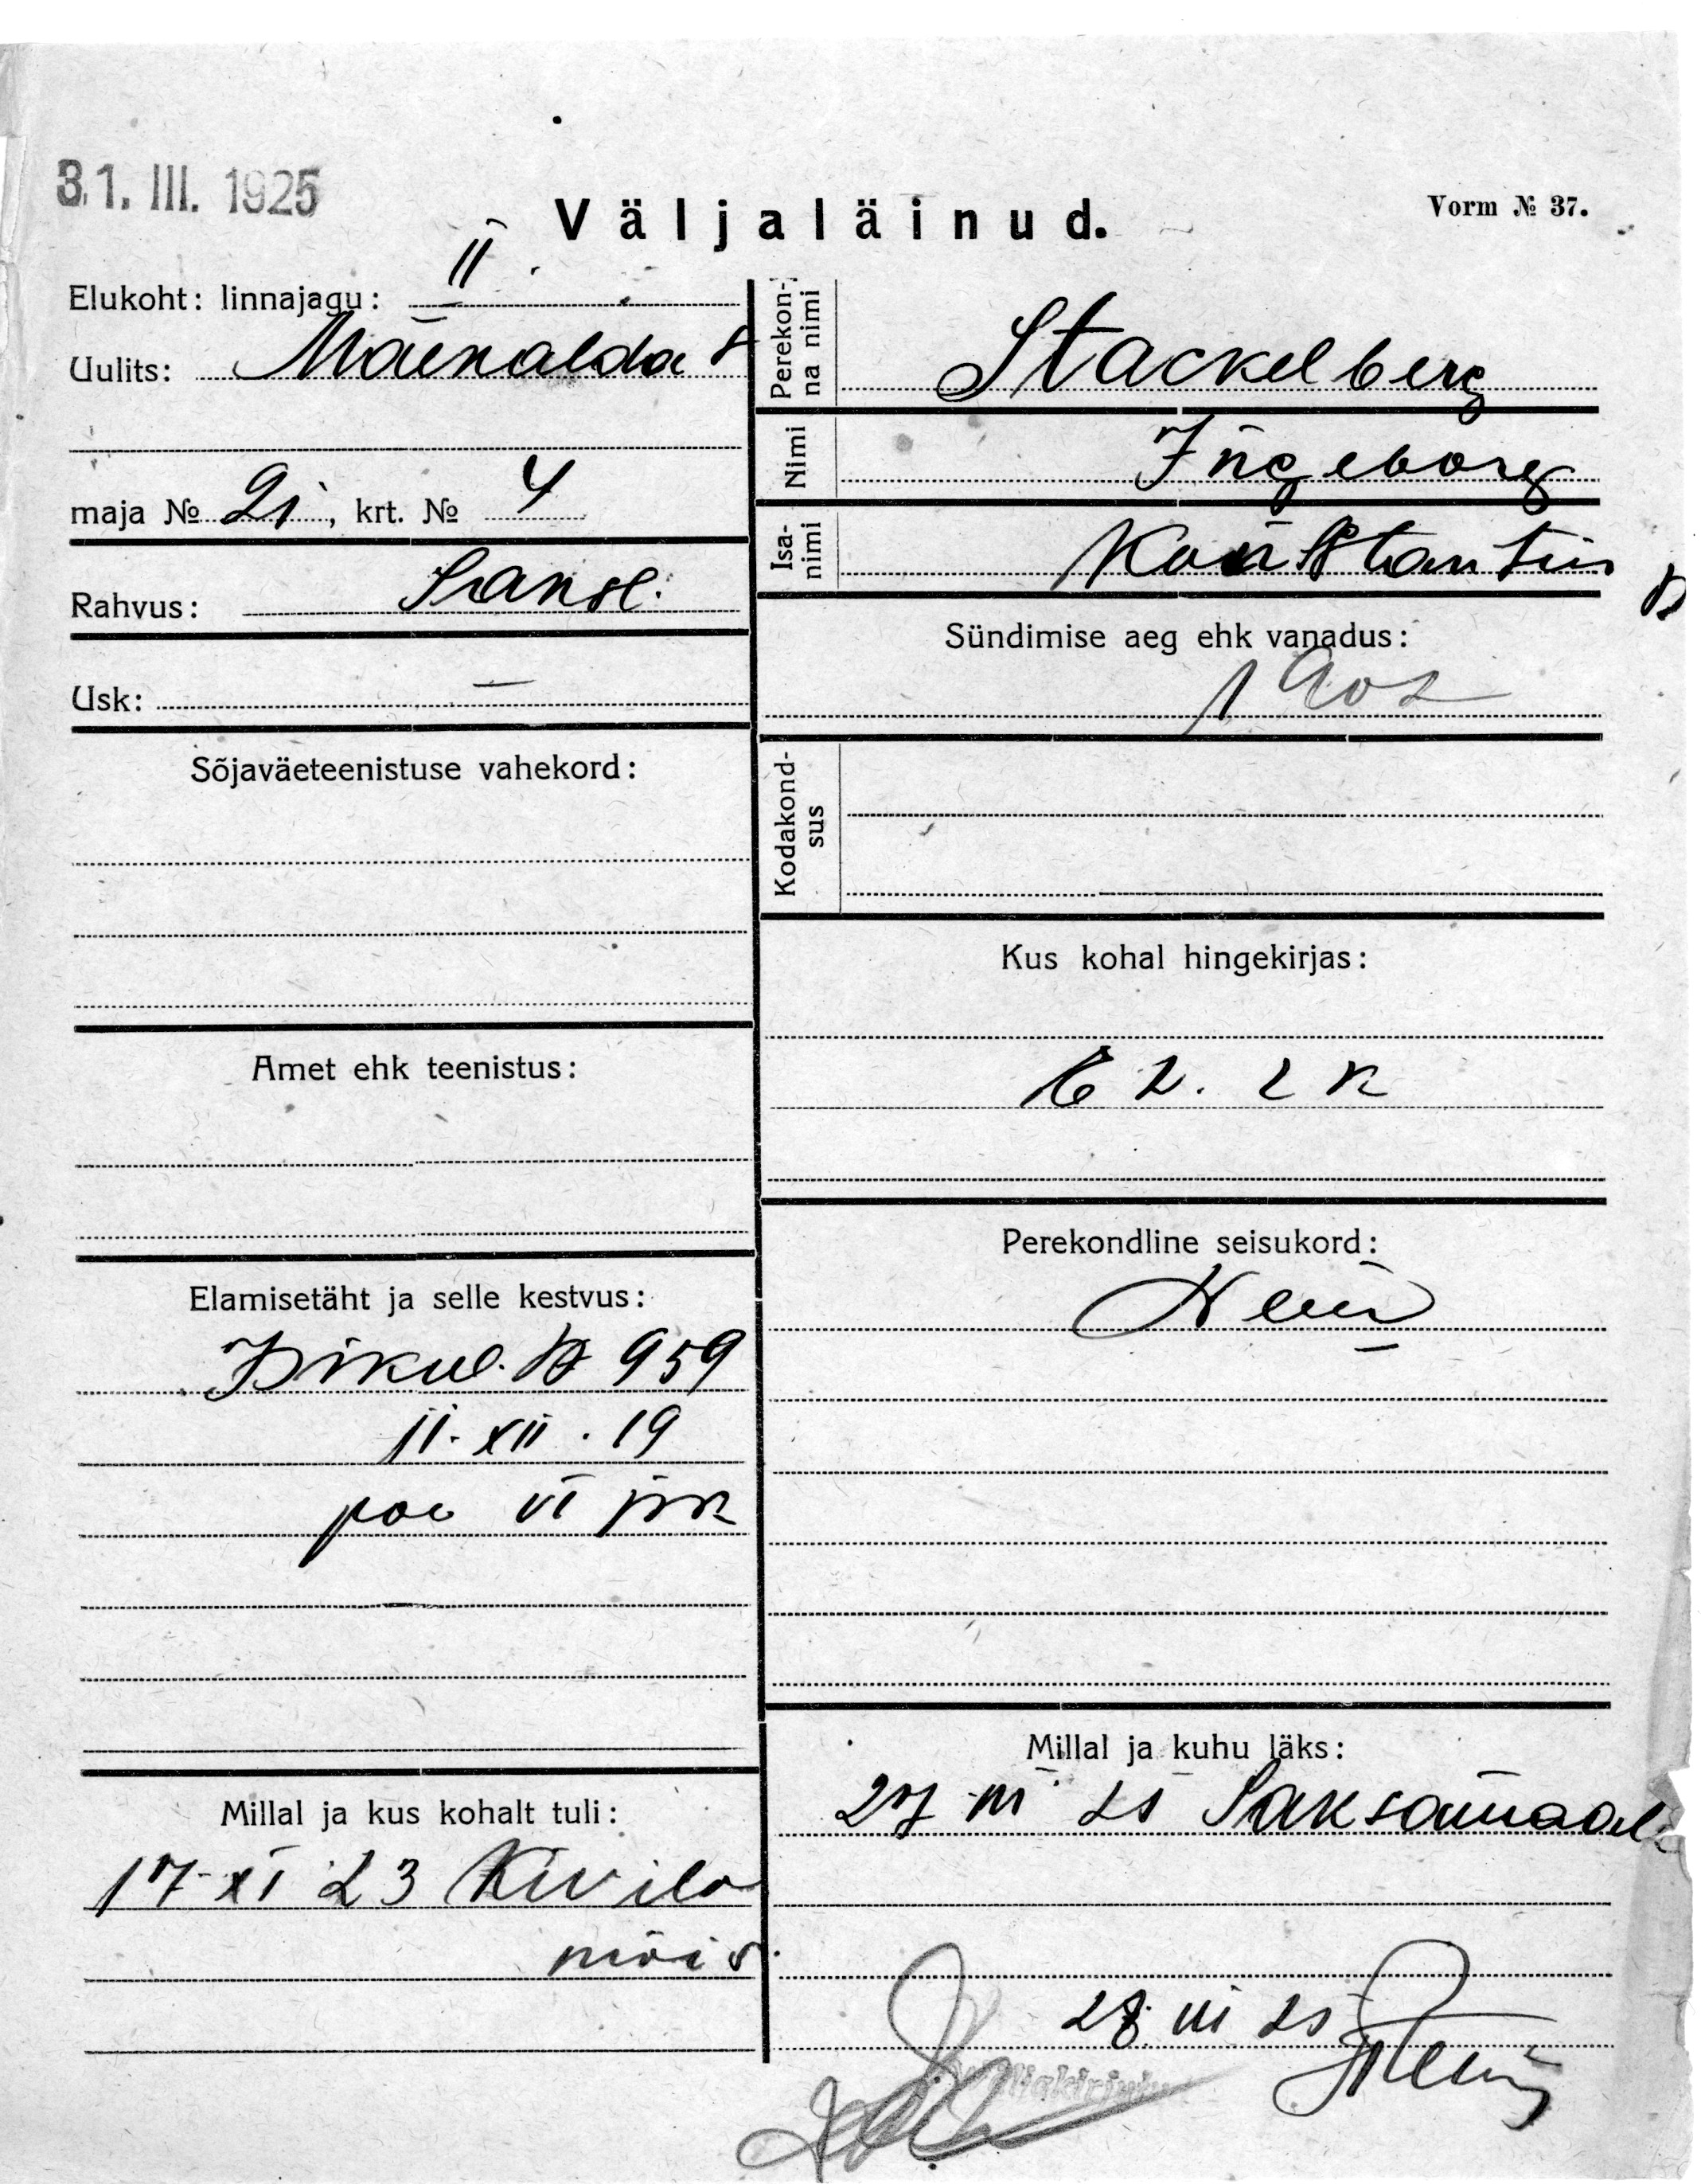 31. III. 1925
Väljaläinud.
Vorm № 37.
Elukoht: linnajagu: II
Uulits:
maja № 21, krt. № 4
Rahvus: Saksl.
Usk: —
Sõjaväeteenistuse vahekord:
Amet ehk teenistus:
Elamisetäht ja selle kestvus:
Isikul. № 959
11. XII. 19
VI jsk
Millal ja kus kohalt tuli:
17 XI 23 Kivilo
mõis.
Perekon-
na nimi
Stackelberg
Nimi
Ingeborg
Isa-
nimi
Konstantin
Sündimise aeg ehk vanadus:
1902
Kodakond-
sus
Kus kohal hingekirjas:
Perekondline seisukord:
Millal ja kuhu läks:
27 III 25 Saksamaale
28. III 25